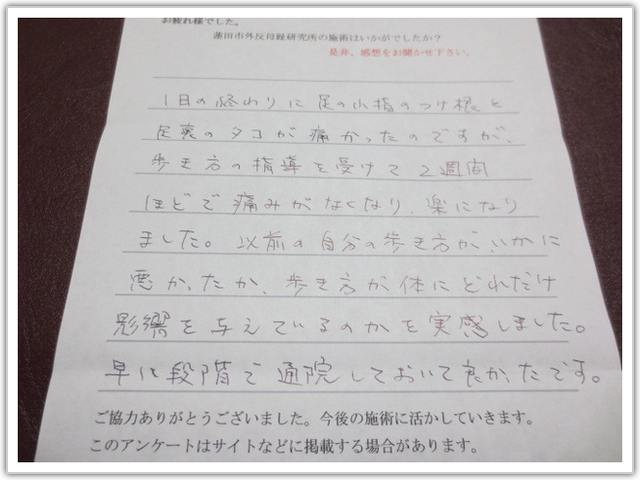 お疲れ様でした。
蓮田市外反母趾研究所の施術はいかがでしたか？
是非、感想をお聞かせ下さい。
1日の終わりに足の小指のつけ根と
足裏のタコが痛かったのですが、
歩き方の指導を受けて2週間
ほどで痛みがなくなり、楽になり
ました。以前の自分の歩き方が、いかに
悪かったか、歩き方が体にどれだけ
影響を与えているのかを実感しました。
早い段階で通院しておいて良かったです。
ご協力ありがとうございました。今後の施術に活かしていきます。
このアンケートはサイトなどに掲載する場合があります。